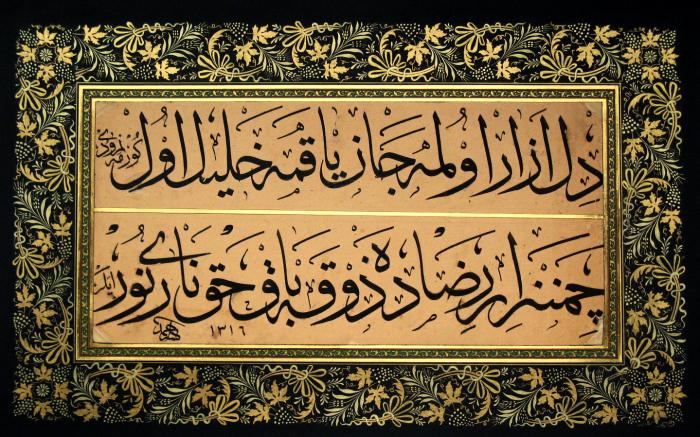 دل آزار اولمه جان یاقمه خلیل اول نمرودی
چمنزار رضاده ذوقه باق حق ناری نور ایلر
١٣١٦